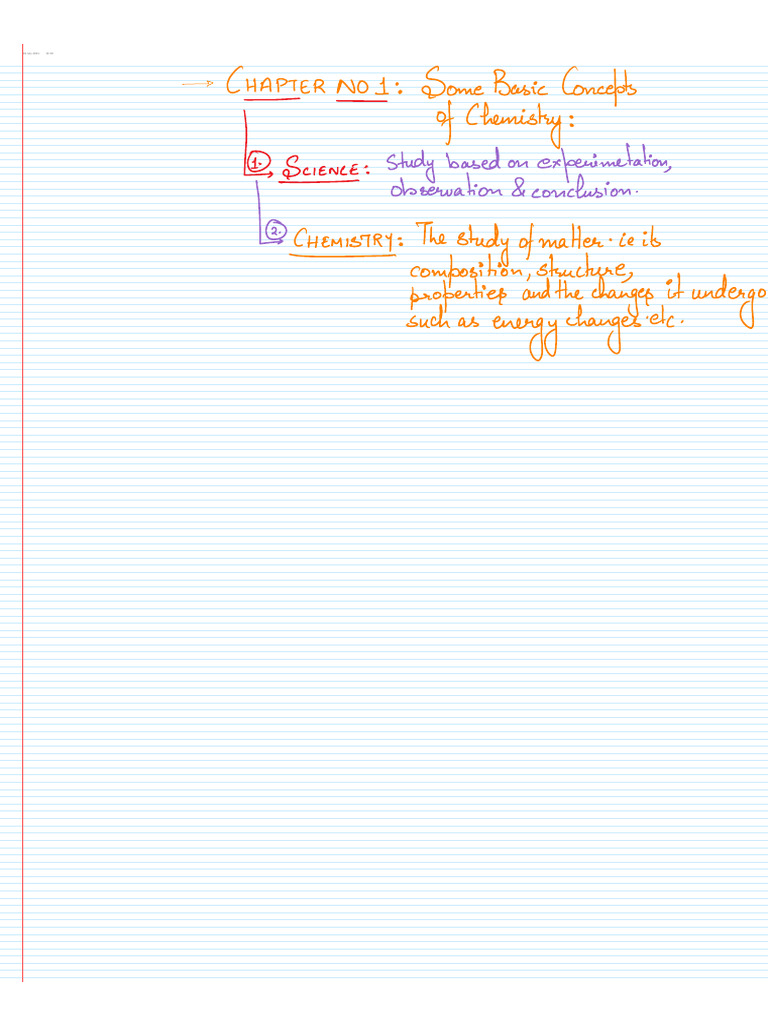 → CHAPTER NO 1: Some Basic Concepts
of Chemistry:
1. SCIENCE: Study based on experimetation,
observation & conclusion.
2. CHEMISTRY: The study of matter. ie its
composition, structure,
properties and the changes it undergo
such as energy changes. etc.